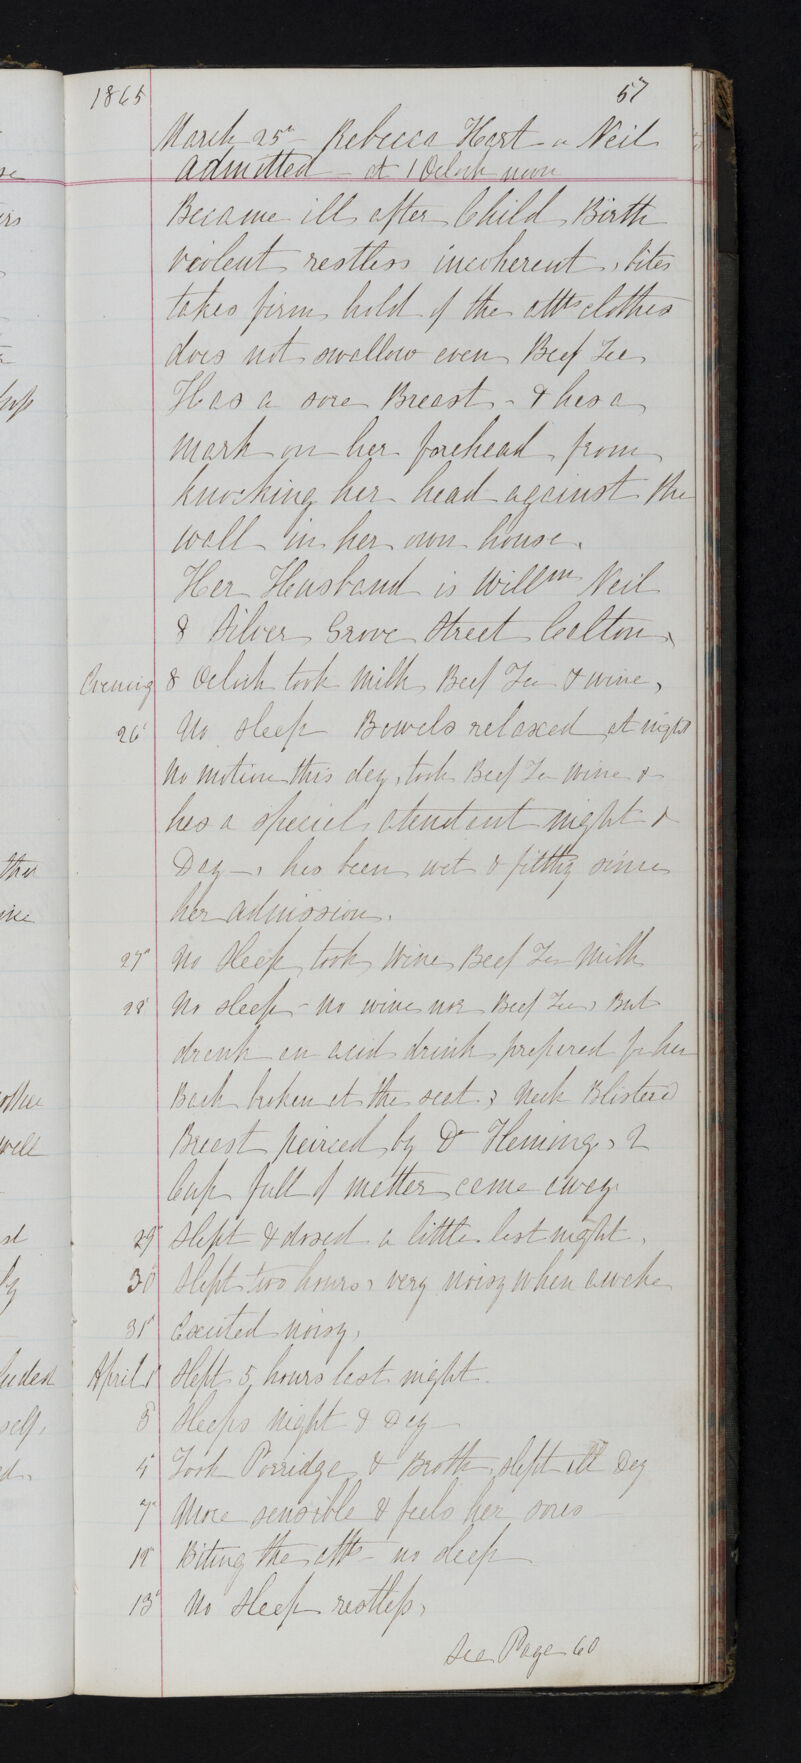 1865
57
March 25th Rebecca Hart or Neil
admitted at 1 Oclock noon
Became ill after Child Birth
violent restless incoherent, bites
takes firm hold of the atts clothes
does not swallow even Beef Tea
Has a sore Breast - & has a
mark on her forehead from
knocking her head against the
wall in her own house.
Her Husband is Willm Neil
8 Silver Grove Street Calton
Evening 8 Oclock took Milk Beef Tea & wine,
26 No sleep Bowels relaxed at night
No motion this day, took Beef Tea wine &
has a special atendent night &
Day, has been wet & filthy since
her admission.
27 No Sleep took Wine Beef Tea Milk
28 No sleep - No wine nor Beef Tea, But
drank an acid drink prepared for her
Back broken at the seat, Neck Blistered
Breast peirced by Dr Fleming, 2
Cup full of matter came away
29 Slept & dosed a little last night.
30 Slept two hours, very noisy when awake
31 Excited noisy,
April 1 Slept 5 hours last night.
Sleeps night & Day
Took Porridge & Broth slept all Day
7 More sensible & feels her sores
Biting the atts - no sleep
13 No Sleep restless,
See Page 60